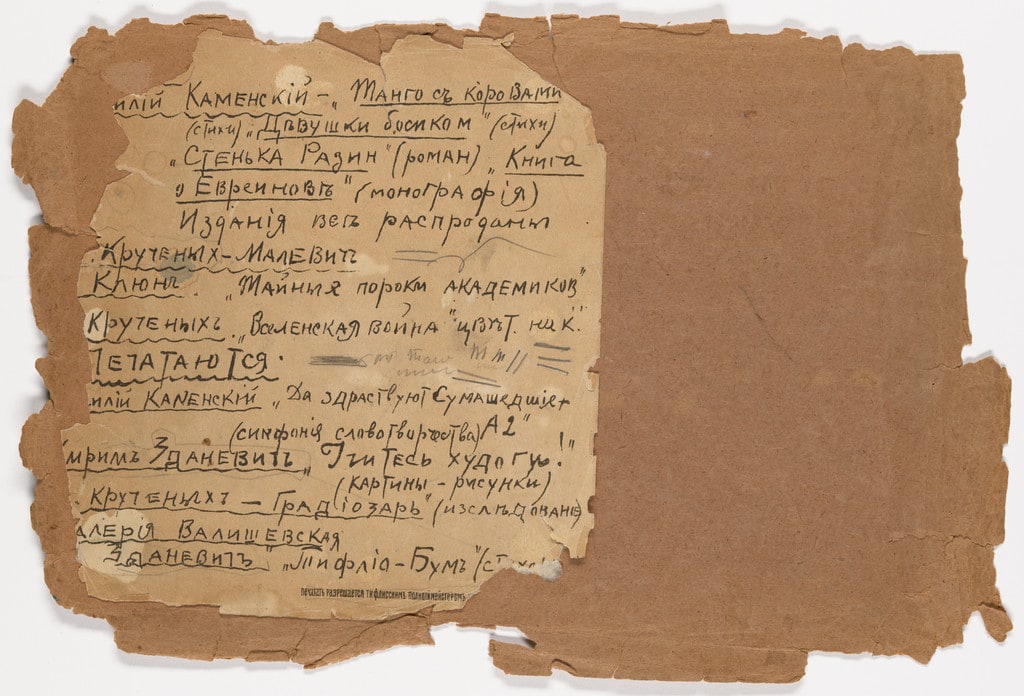 илій Каменскій – „Танго съ коровами
(стихи) „Дѣвушки босиком" (стихи)
„Стенька Разин" (роман) „Книга
о Евреиновѣ" (монографія)
Изданія всѣ распроданы
Крученых – Малевичъ
Клюнъ. „Тайныя пороки академиков"
Крученыхъ. „Вселенская война" цвѣт.
Печатаются.
илій Каменскій „Да здраствуют Сумашедшіе"
(симфонія словотворчества) А2"
Зданевичъ „Учитесь худоги!"
(картины – рисунки)
Крученыхъ – Градіозарь" (изслѣдованіе)
алерія Валишевская
Зданевичъ „Тифліс – Бумъ"
Печатать разрешается тифлисским полицмейстеромъ